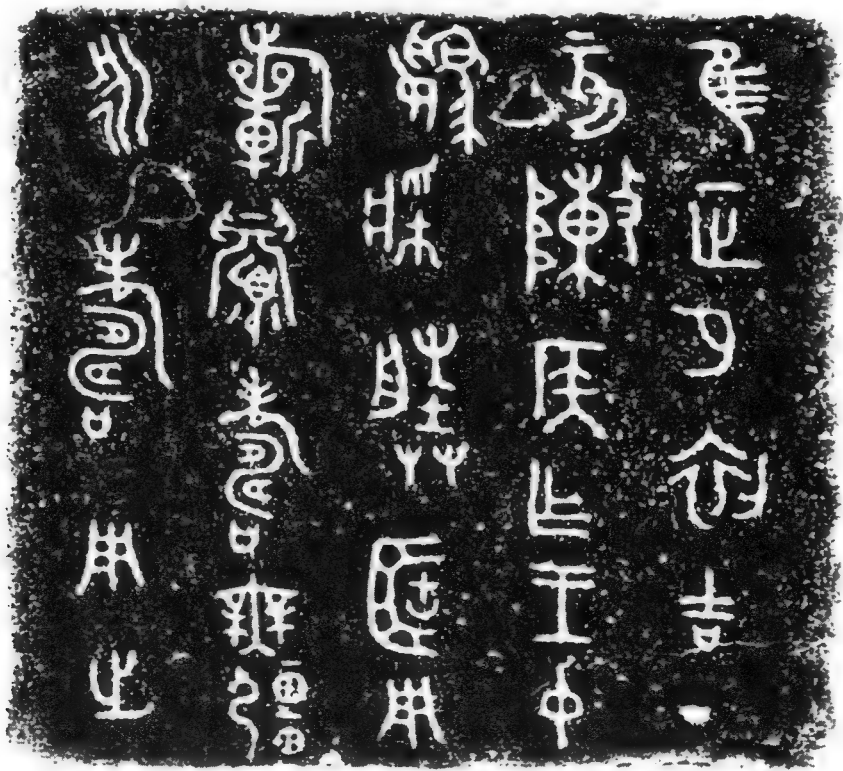 隹正月初吉丁
亥敶侯乍王中
媯媵簠用
𣄨眉壽無彊
永壽用之